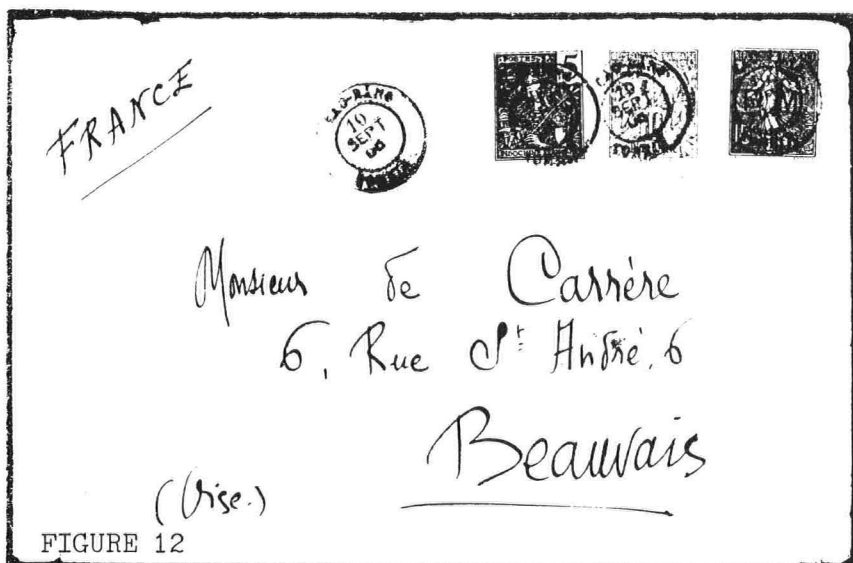 FRANCE
CAO-BANG
10
SEPT
06
TONKIN
5
CAO-BANG
SEPT
TONKIN
Monsieur de Carrère
6, Rue St André, 6
Beauvais
(Oise.)
FIGURE 12